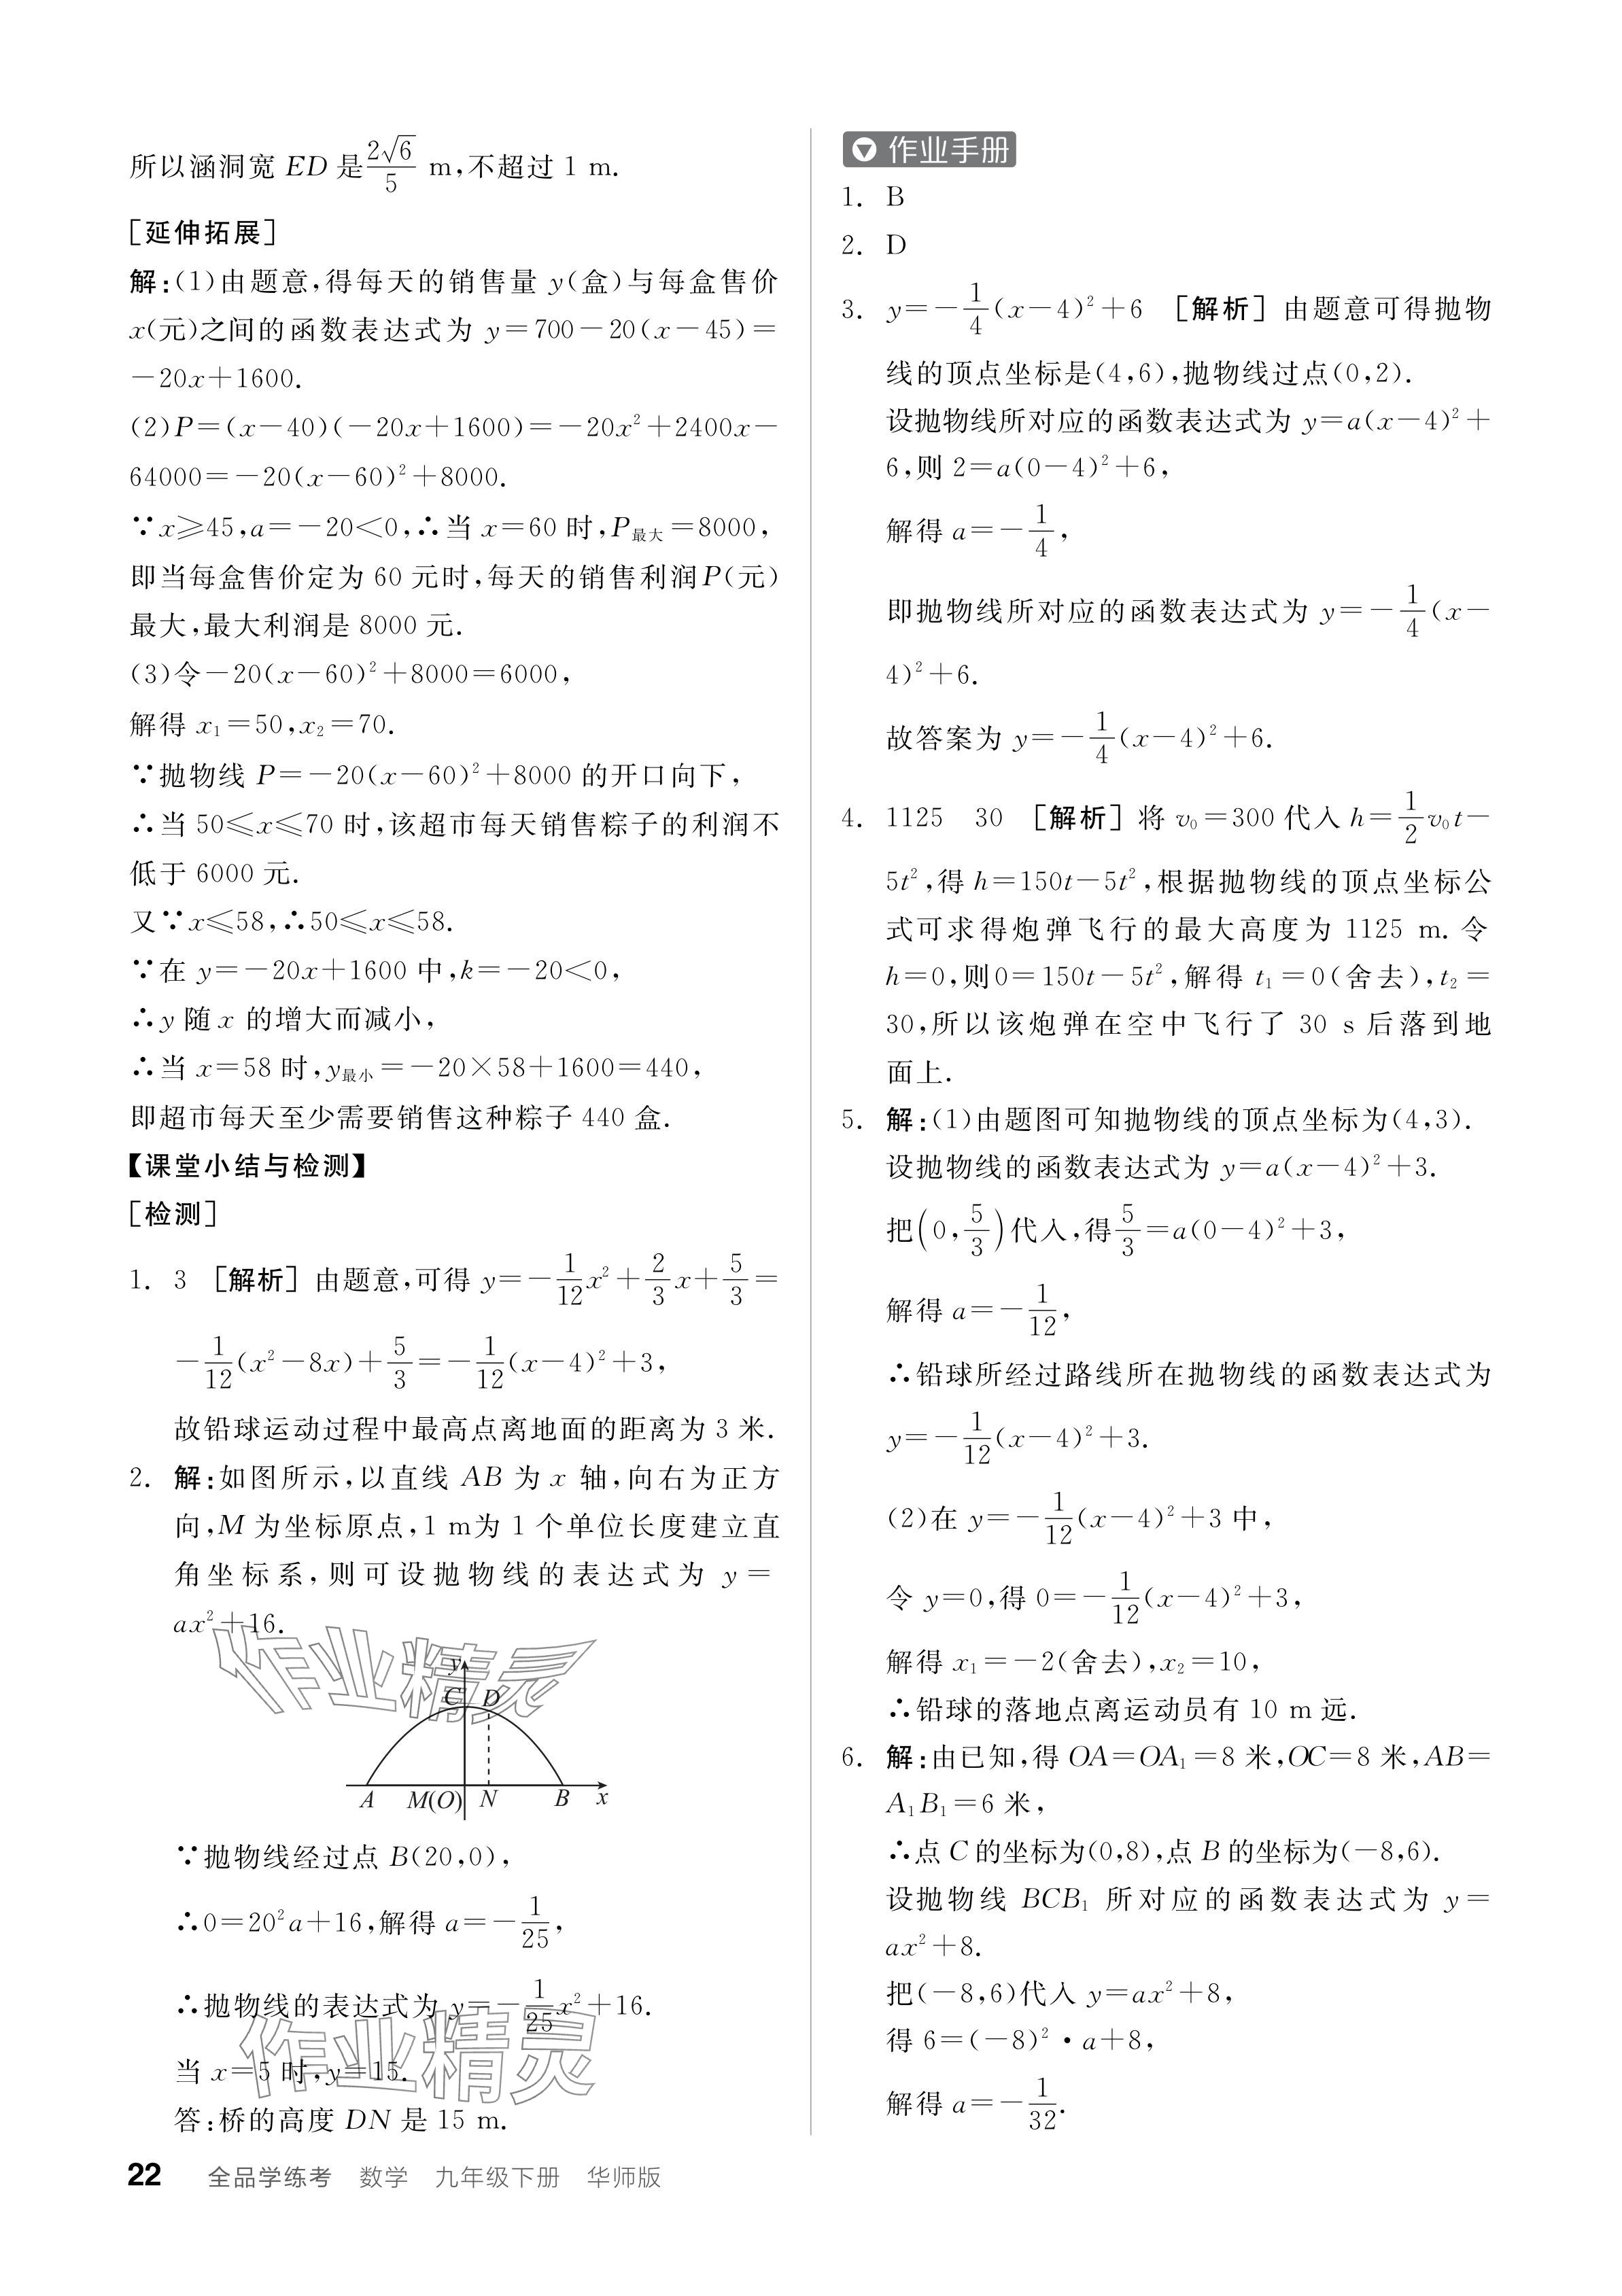 所以涵洞宽 ED 是 2√6/5 m,不超过 1 m.
[延伸拓展]
解:(1)由题意,得每天的销售量 y(盒)与每盒售价
x(元)之间的函数表达式为 y=700-20(x-45)=
-20x+1600.
(2)P=(x-40)(-20x+1600)=-20x²+2400x-
64000=-20(x-60)²+8000.
∵x≥45,a=-20<0,∴当 x=60 时,P最大=8000,
即当每盒售价定为 60 元时,每天的销售利润P(元)
最大,最大利润是 8000 元.
(3)令-20(x-60)²+8000=6000,
解得 x₁=50,x₂=70.
∵抛物线 P=-20(x-60)²+8000 的开口向下,
∴当 50≤x≤70 时,该超市每天销售粽子的利润不
低于 6000 元.
又∵x≤58,∴50≤x≤58.
∵在 y=-20x+1600 中,k=-20<0,
∴y 随 x 的增大而减小,
∴当 x=58 时,y最小=-20×58+1600=440,
即超市每天至少需要销售这种粽子 440 盒.
【课堂小结与检测】
[检测]
1. 3 [解析] 由题意,可得 y=-1/12x²+2/3x+5/3=
-1/12(x²-8x)+5/3=-1/12(x-4)²+3,
故铅球运动过程中最高点离地面的距离为 3 米.
2. 解:如图所示,以直线 AB 为 x 轴,向右为正方
向,M 为坐标原点,1 m为 1 个单位长度建立直
角坐标系,则可设抛物线的表达式为 y=
ax²+16.
作业精灵
y
C D
A M(O) N B x
∵抛物线经过点 B(20,0),
∴0=20²a+16,解得 a=-1/25,
∴抛物线的表达式为 y=-1/25x²+16.
作业精灵
当 x=5 时,y=15.
答:桥的高度 DN 是 15 m.
22 全品学练考 数学 九年级下册 华师版
作业手册
1. B
2. D
3. y=-1/4(x-4)²+6 [解析] 由题意可得抛物
线的顶点坐标是(4,6),抛物线过点(0,2).
设抛物线所对应的函数表达式为 y=a(x-4)²+
6,则 2=a(0-4)²+6,
解得 a=-1/4,
即抛物线所对应的函数表达式为 y=-1/4(x-
4)²+6.
故答案为 y=-1/4(x-4)²+6.
4. 1125 30 [解析] 将 v₀=300 代入 h=1/2v₀t-
5t²,得 h=150t-5t²,根据抛物线的顶点坐标公
式可求得炮弹飞行的最大高度为 1125 m. 令
h=0,则0=150t-5t²,解得 t₁=0(舍去),t₂=
30,所以该炮弹在空中飞行了 30 s 后落到地
面上.
5. 解:(1)由题图可知抛物线的顶点坐标为(4,3).
设抛物线的函数表达式为 y=a(x-4)²+3.
把(0,5/3)代入,得5/3=a(0-4)²+3,
解得 a=-1/12,
∴铅球所经过路线所在抛物线的函数表达式为
y=-1/12(x-4)²+3.
(2)在 y=-1/12(x-4)²+3 中,
令 y=0,得 0=-1/12(x-4)²+3,
解得 x₁=-2(舍去),x₂=10,
∴铅球的落地点离运动员有 10 m 远.
6. 解:由已知,得 OA=OA₁=8 米,OC=8 米,AB=
A₁B₁=6 米,
∴点 C 的坐标为(0,8),点 B 的坐标为(-8,6).
设抛物线 BCB₁ 所对应的函数表达式为 y=
ax²+8.
把(-8,6)代入 y=ax²+8,
得 6=(-8)²·a+8,
解得 a=-1/32.